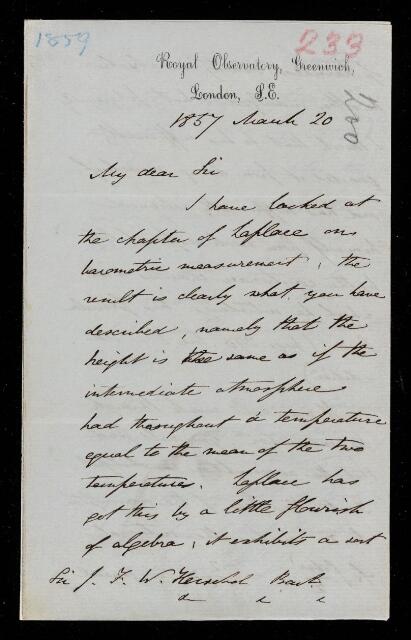 1859
233
Royal Observatory, Greenwich,
London, S.E.
200
1857 March 20
My dear Sir
I have looked at
the chapter of Laplace on
barometric measurement; the
result is clearly what you have
described, namely that the
height is the same as if the
intermediate atmosphere
had throughout a temperature
equal to the mean of the two
temperatures. Laplace has
got this by a little flourish
of algebra; it exhibits a sort
Sir J. F. W. Herschel Bart.